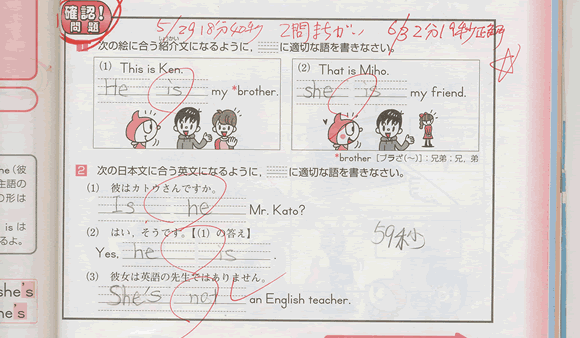 確認!
問題
5/29 18分42秒 2問まちがい 6/3 2分19秒
1 次の絵に合う紹介文になるように、に適切な語を書きなさい。
しょうかい
(1) This is Ken.
He is my *brother.
(2) That is Miho.
she is my friend.
*brother [ブラざ(~)]:兄弟;兄,弟
2 次の日本文に合う英文になるように、に適切な語を書きなさい。
(1) 彼はカトウさんですか。
Is he Mr. Kato?
(2) はい,そうです。【(1)の答え】
Yes, he is .
59秒
(3) 彼女は英語の先生ではありません。
She's not an English teacher.
me(彼
主語の
の形は
is は
るよ。
she's
e's